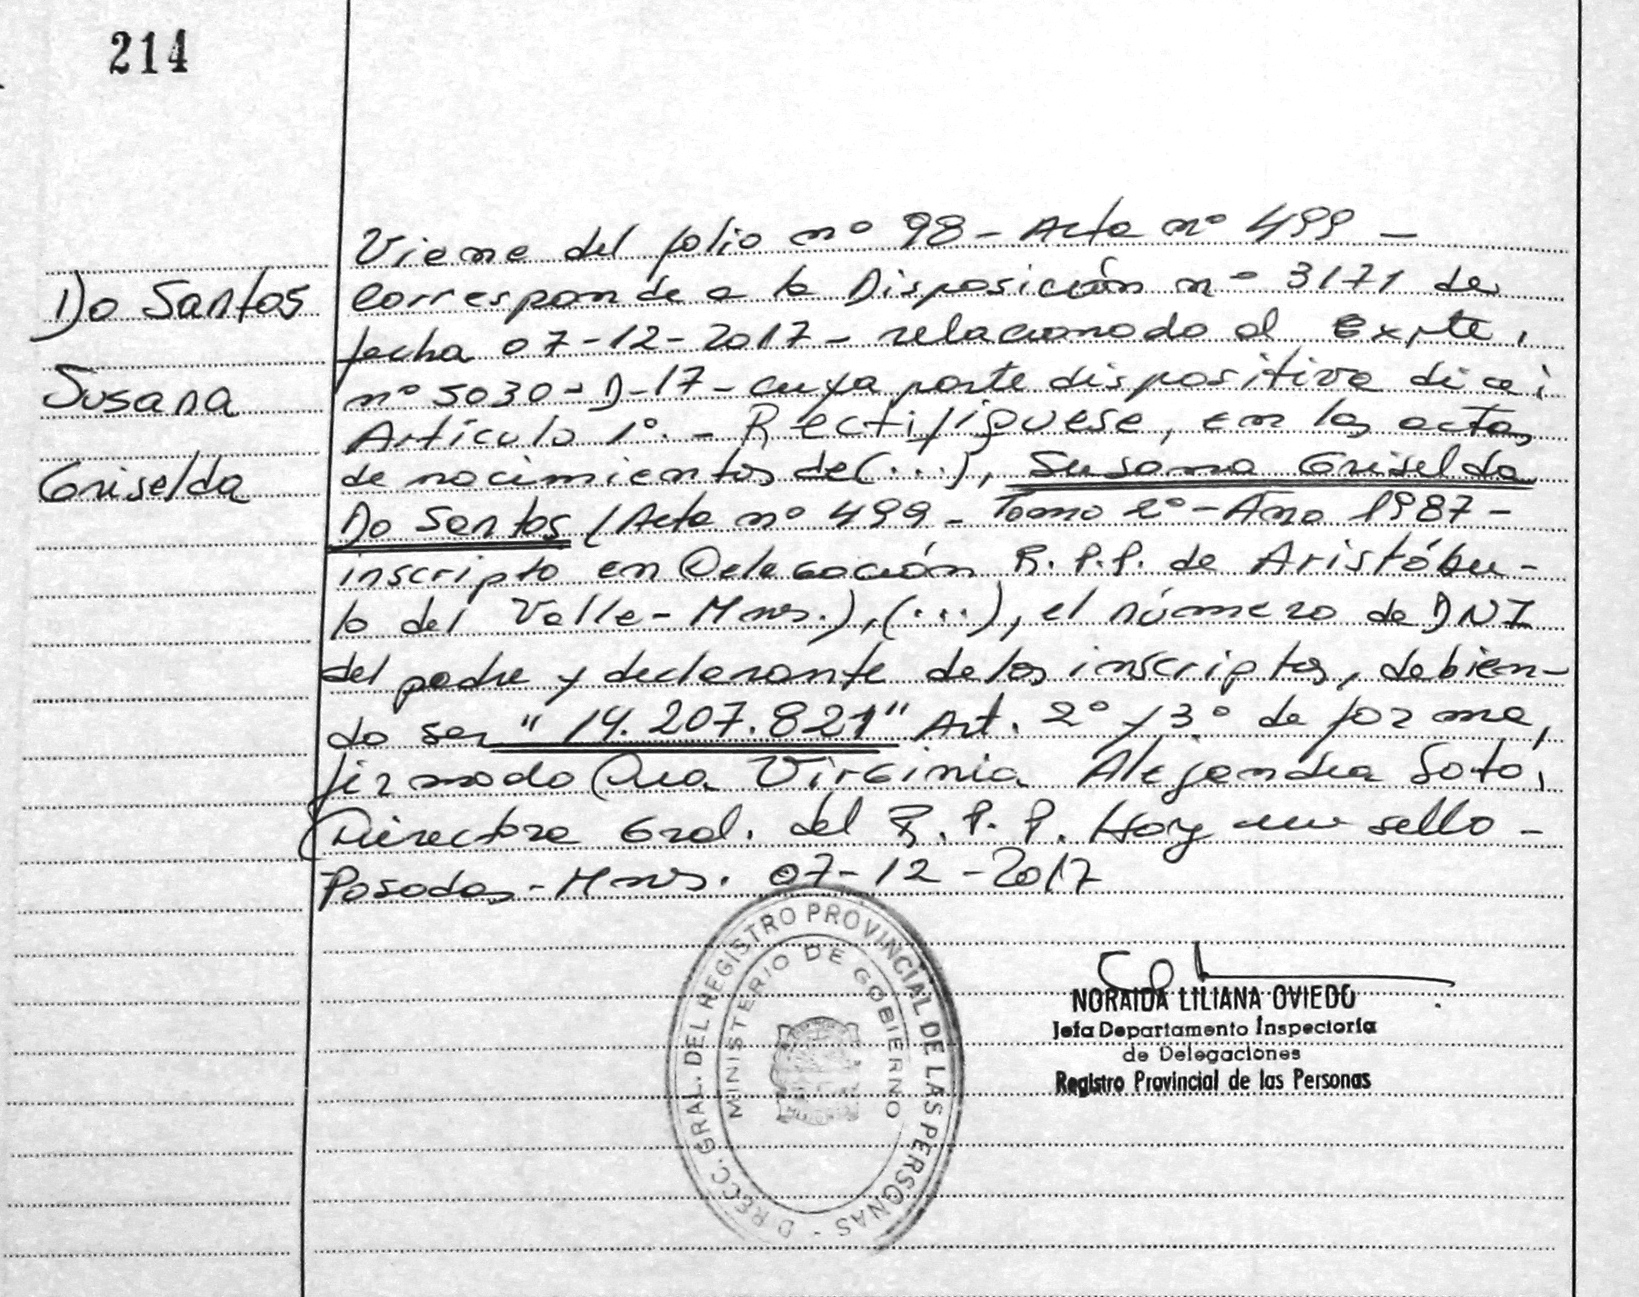 214
Do Santos
Susana
Griselda
Viene del folio nº 98 - Acta nº 499 -
corresponde a la Disposición nº 3171 de
fecha 07-12-2017 - relacionado al Expte.
nº 5030-D-17 - cuya parte dispositiva dice:
Artículo 1º. - Rectifíquese, en las actas
de nacimientos de (...), Susana Griselda
Do Santos (Acta nº 499 - Tomo 2º - Año 1987 -
inscripto en Delegación R.P.P. de Aristóbu-
lo del Valle - Mnes.), (...), el número de DNI
del padre y declarante de los inscriptos, debien-
do ser "14.207.821" Art. 2º y 3º de forma,
firmado Dra. Virginia Alejandra Soto,
Directora Gral. del R.P.P. Hay un sello -
Posadas - Mnes. 07-12-2017
DIRECC. GRAL. DEL REGISTRO PROVINCIAL DE LAS PERSONAS -
MINISTERIO DE GOBIERNO
MISIONES
NORAIDA LILIANA OVIEDO
Jefa Departamento Inspectoría
de Delegaciones
Registro Provincial de las Personas